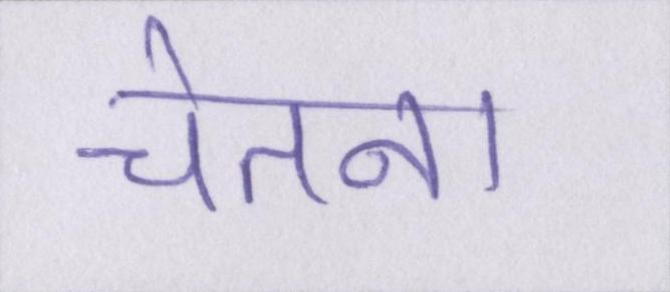 चेतना